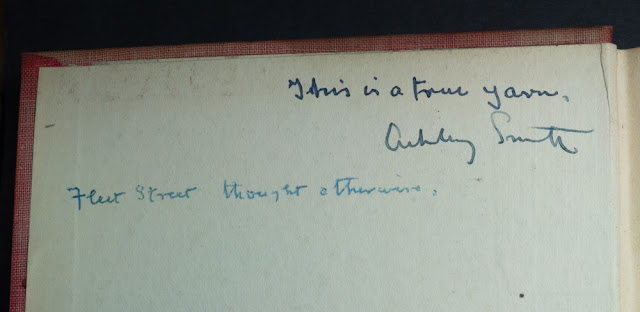 This is a true yarn.
Ashley Smith
Fleet Street thought otherwise.